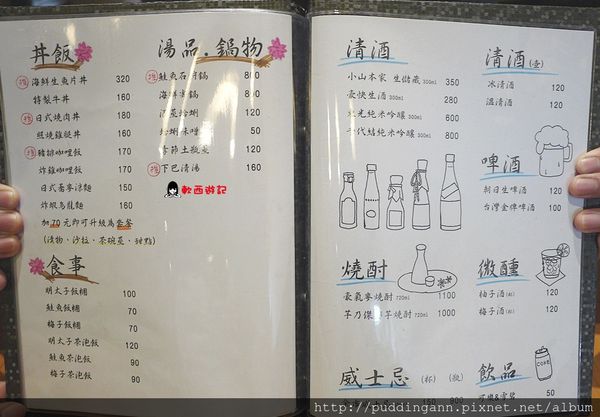 丼飯
推 海鮮生魚片丼 320
特製牛丼 160
推 日式燒肉丼 180
照燒雞腿丼 160
推 豬排咖哩飯 170
炸雞咖哩飯 170
日式蕎麥涼麵 150
炸蝦烏龍麵 160
加70元即可升級為套餐
(漬物、沙拉、茶碗蒸、甜點)
食事
明太子飯糰 100
鮭魚飯糰 70
梅子飯糰 70
明太子茶泡飯 120
鮭魚茶泡飯 90
梅子茶泡飯 90
湯品.鍋物
推 鮭魚石狩鍋 800
海鮮 鍋 800
酒蒸蛤蜊 120
蛤蜊味噌 50
季節土瓶蒸 120
推 下巴清湯 160
軟西遊記
清酒
小山本家 生儲藏 300ml 350
豪快生酒 300ml 280
純米吟釀 300ml 600
千代結純米吟釀 300ml 800
燒酎
豪氣麥燒酎 720ml 1100
芋燒酎 720ml 1000
威士忌 (杯) (瓶)
清酒(壺)
冰清酒 120
溫清酒 120
啤酒
朝日生啤酒 120
台灣金牌啤酒 100
微醺
柚子酒(杯) 120
梅子酒(杯) 120
飲品
COKE
可樂&雪碧 50
http://puddingann.pixnet.net/album